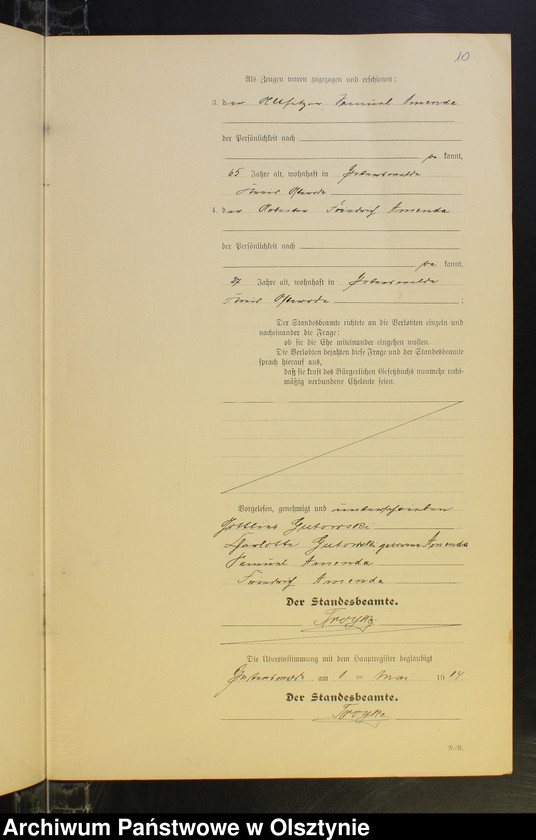 10
Als Zeugen waren zugezogen und erschienen:
3. der Altsitzer Samuel Amenda
der Persönlichkeit nach
be kannt,
65 Jahre alt, wohnhaft in
Kreis Osterode
4. der Arbeiter Friedrich Amenda
der Persönlichkeit nach
be kannt,
27 Jahre alt, wohnhaft in
Kreis Osterode ;
Der Standesbeamte richtete an die Verlobten einzeln und
nacheinander die Frage:
ob sie die Ehe miteinander eingehen wollen.
Die Verlobten bejahten diese Frage und der Standesbeamte
sprach hierauf aus,
daß sie kraft des Bürgerlichen Gesetzbuchs nunmehr recht-
mäßig verbundene Eheleute seien.
Vorgelesen, genehmigt und unterschrieben
Gottlieb Gutowski
Charlotte Gutowski geborene Amenda
Samuel Amenda
Friedrich Amenda
Der Standesbeamte.
Die Übereinstimmung mit dem Hauptregister beglaubigt
am 1 ten Mai 1914.
Der Standesbeamte.
N.-R.
Archiwum Państwowe w Olsztynie